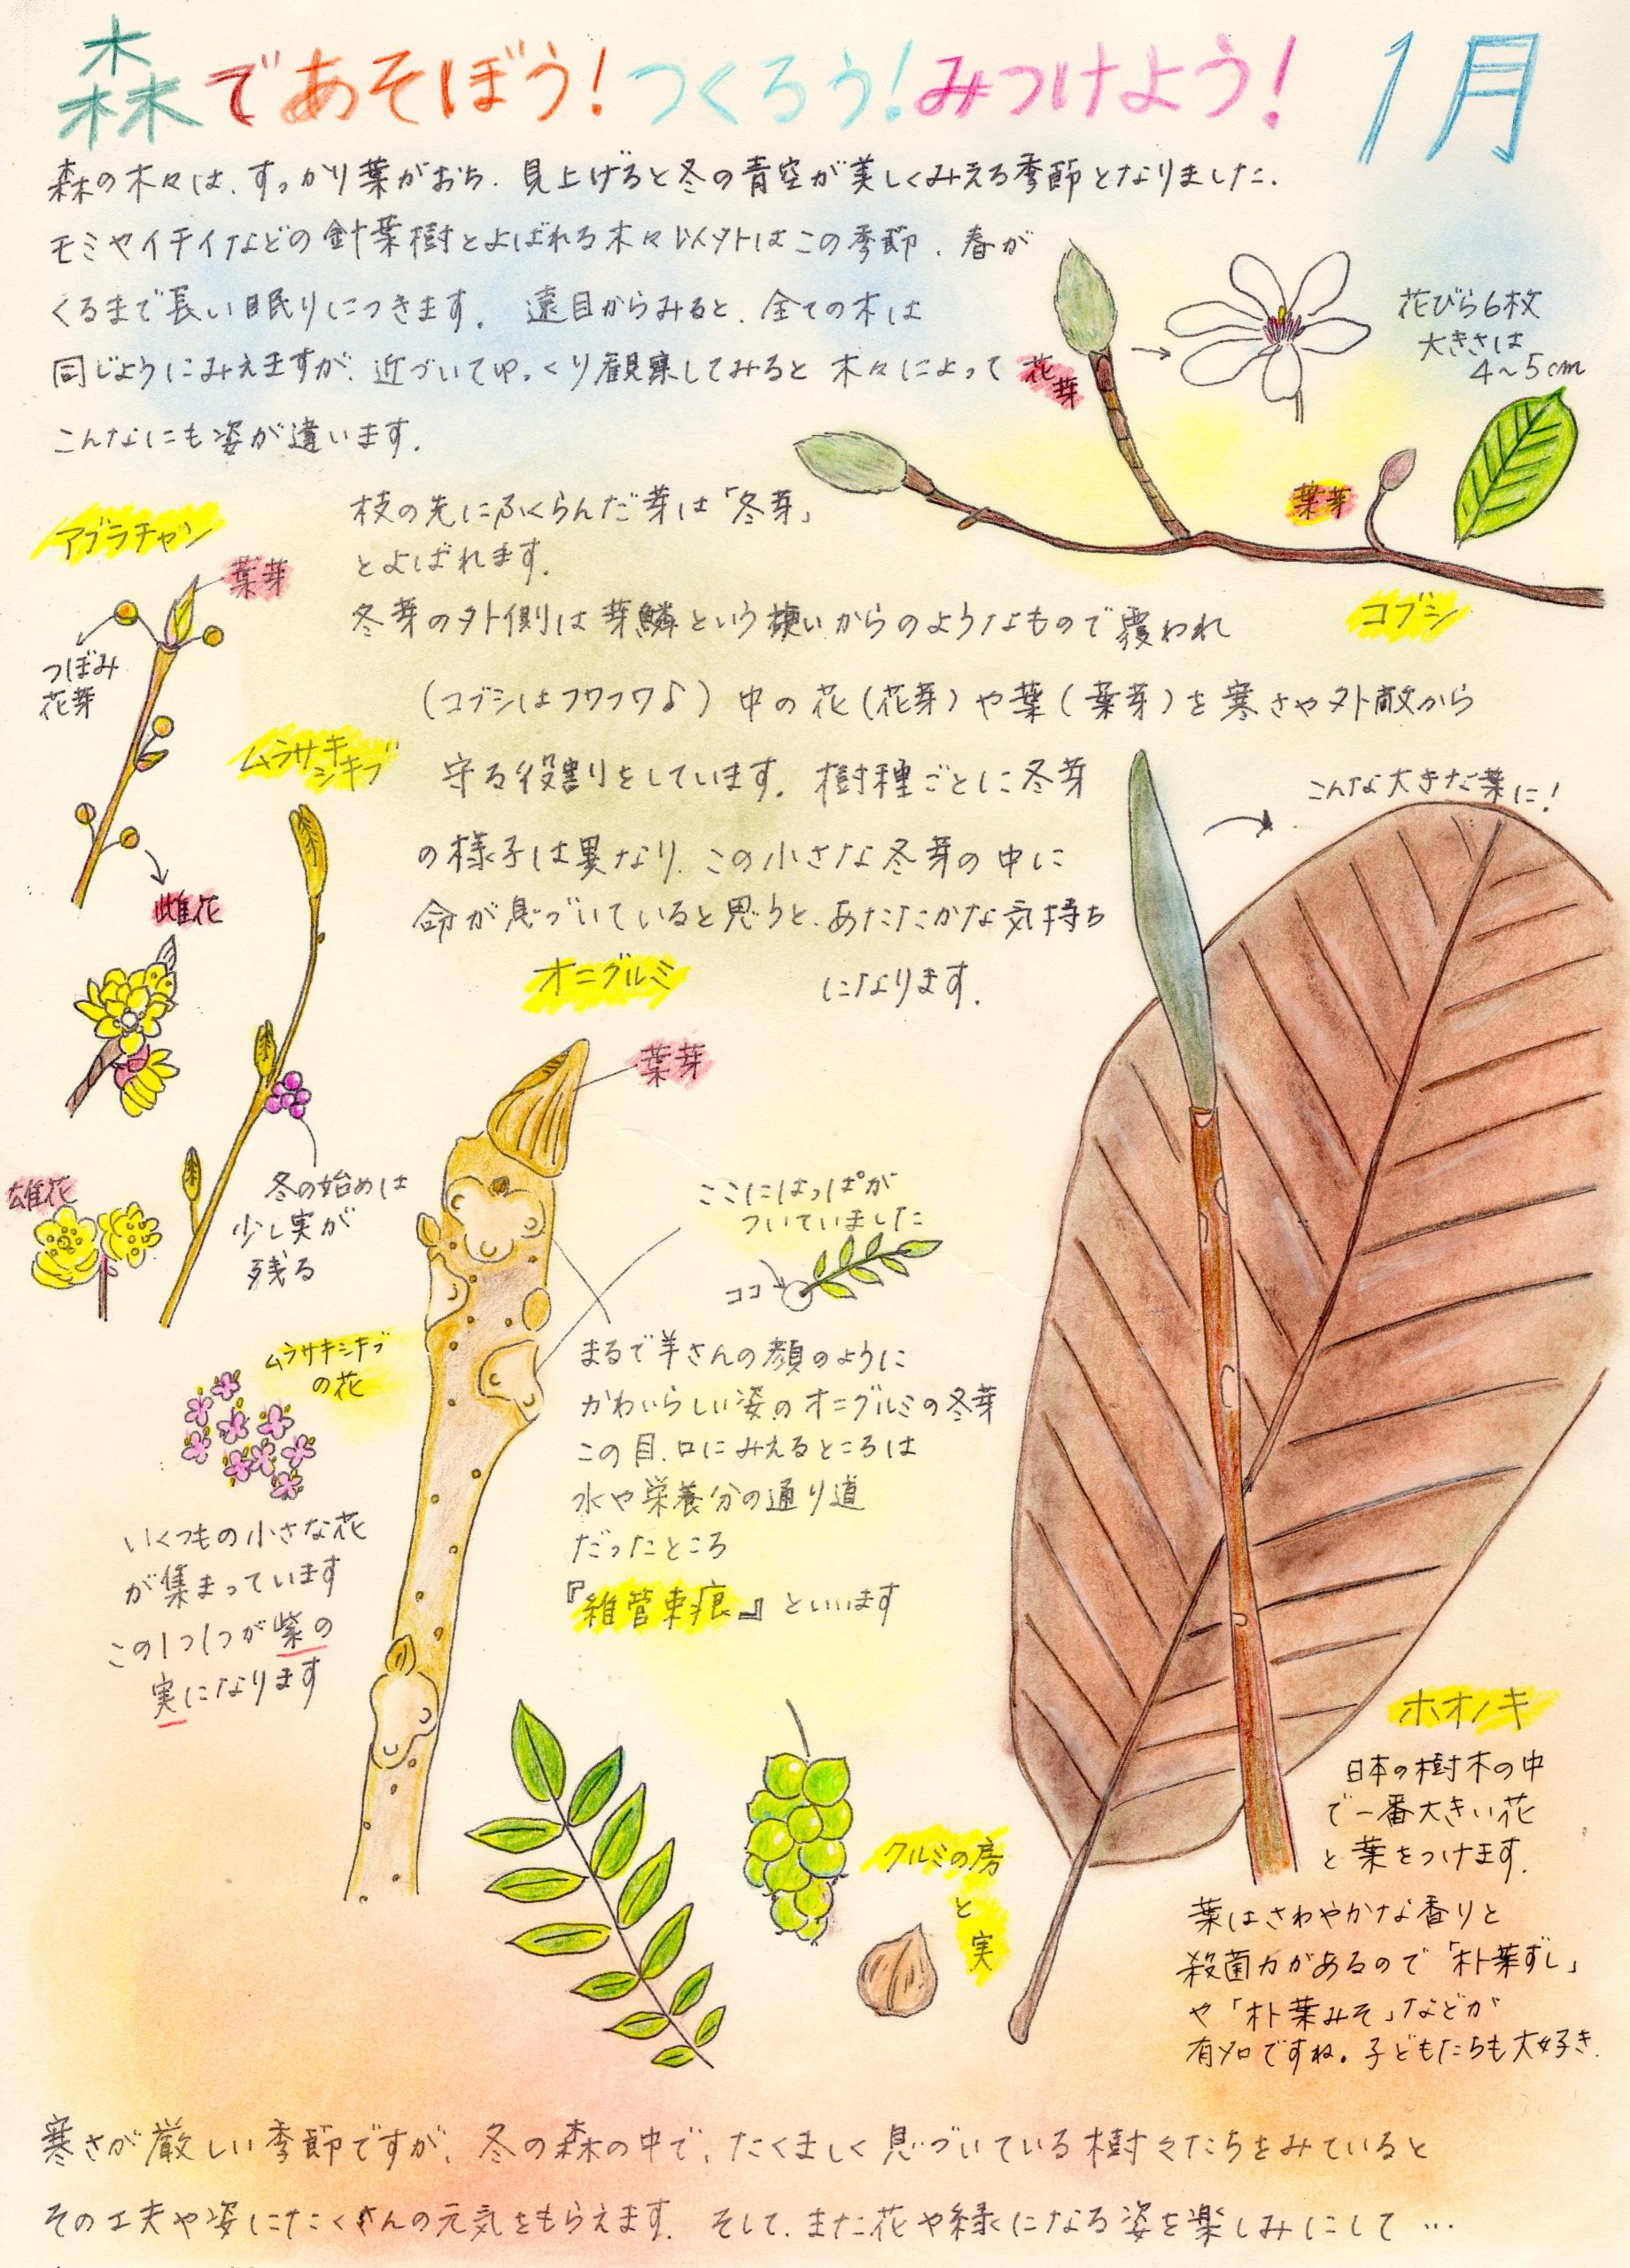 森であそぼう！つくろう！みつけよう！ 1月
森の木々は、すっかり葉がおち、見上げると冬の青空が美しくみえる季節となりました.
モミやイチイなどの針葉樹とよばれる木々以外はこの季節、春が
くるまで長い眠りにつきます。 遠目からみると、全ての木は
同じようにみえますが、近づいてゆっくり観察してみると木々によって
こんなにも姿が違います.
花芽
花びら6枚
大きさは
4~5cm
葉芽
コブシ
枝の先にふくらんだ芽は「冬芽」
とよばれます.
冬芽の外側は芽鱗という硬いからのようなもので覆われ
(コブシはフワフワ♪) 中の花(花芽)や葉(葉芽)を寒さや外敵から
守る役割りをしています. 樹種ごとに冬芽
の様子は異なり、この小さな冬芽の中に
命が息づいていると思うと、あたたかな気持ち
になります.
アブラチャン
葉芽
つぼみ
花芽
雌花
雄花
ムラサキ
シキブ
冬の始めは
少し実が
残る
ムラサキシキブ
の花
いくつもの小さな花
が集まっています
この1つ1つが紫の
実になります
オニグルミ
葉芽
ここにはっぱが
ついていました
ココ
まるで羊さんの顔のように
かわいらしい姿のオニグルミの冬芽
この目、口にみえるところは
水や栄養分の通り道
だったところ
『維管束痕』といいます
クルミの房
と
実
こんな大きな葉に！
ホオノキ
日本の樹木の中
で一番大きい花
と葉をつけます.
葉はさわやかな香りと
殺菌力があるので「朴葉ずし」
や「朴葉みそ」などが
有名ですね。子どもたちも大好き.
寒さが厳しい季節ですが、冬の森の中で、たくましく息づいている樹々たちをみていると
その工夫や姿にたくさんの元気をもらえます. そして、また花や緑になる姿を楽しみにして…